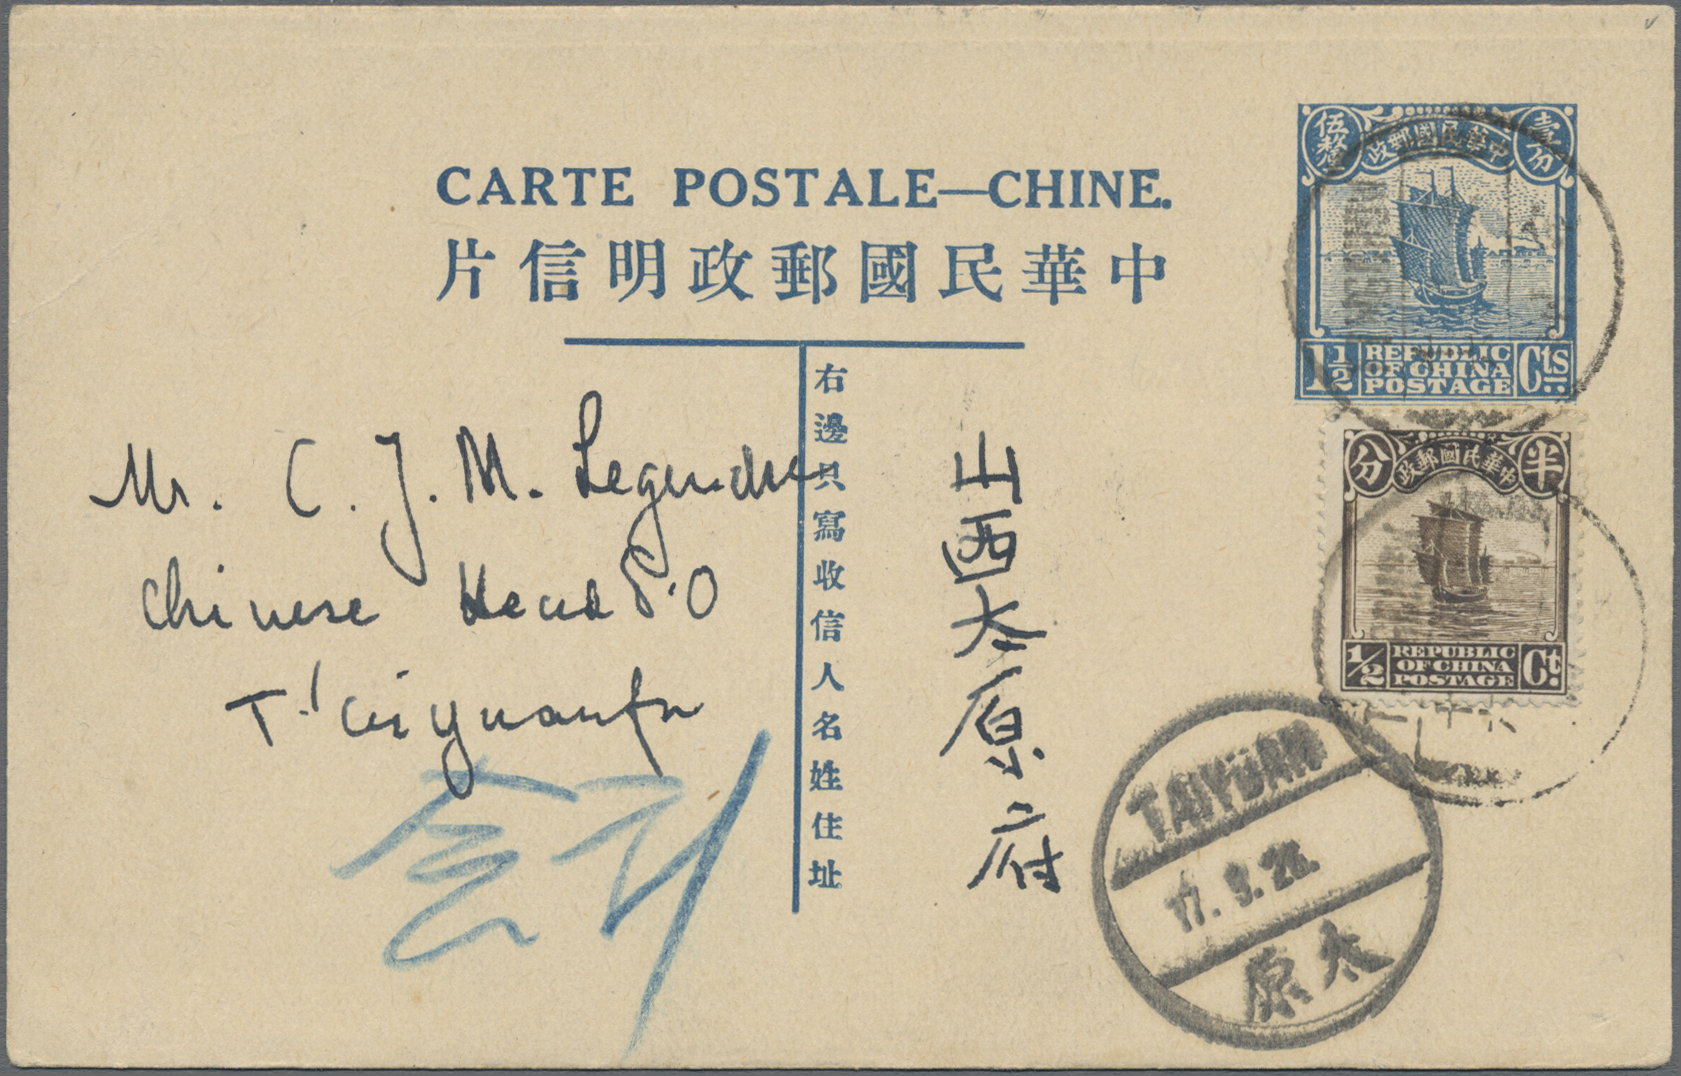 CARTE POSTALE—CHINE.
中華民國郵政明信片
伍釐 壹分
中華民國郵政
1½ REPUBLIC OF CHINA POSTAGE Cts
分 半
中華民國郵政
1/2 REPUBLIC OF CHINA POSTAGE Ct.
右邊只寫收信人名姓住址
山西太原府
Mr. C. J. M. Legendre
Chinese Head P.O
T'aiyuanfu
TAIYÜAN
17.9.26.
太原